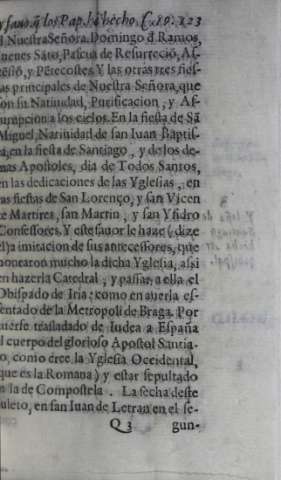 y fauo. q̃ los Pap. hã hecho. C. 10. 123
Nuestra Señora. Domingo d Ramos,
ueues Sãto, Pascua de Resurreció, As-
cẽsiõ, y Pẽtecostes. Y las otras tres fies-
as principales de Nuestra Señora, que
on su Natiuidad, Purificacion, y As-
umpcion a los cielos. En la fiesta de Sã
Miguel, Natiuidad de san Iuan Baptis-
ta, en la fiesta de Santiago, y de los de-
mas Apostoles, dia de Todos Santos,
en las dedicaciones de las Yglesias, en
as fiestas de San Lorenço, y san Vicen
te Martires, san Martin, y san Ysidro
Confessores. Y este fauor le haze (dize
el) a imitacion de sus antecessores, que
honraron mucho la dicha Yglesia, assi
en hazerla Catedral, y passar a ella el
Obispado de Iria: como en auerla es-
sentado de la Metropoli de Braga. Por
auerse trasladado de Iudea a España
el cuerpo del glorioso Apostol Santia-
o, como cree la Yglesia Occidental,
que es la Romana) y estar sepultado
en la de Compostela. La fecha deste
uleto, en san Iuan de Letran en el se-
Q 3 gun-